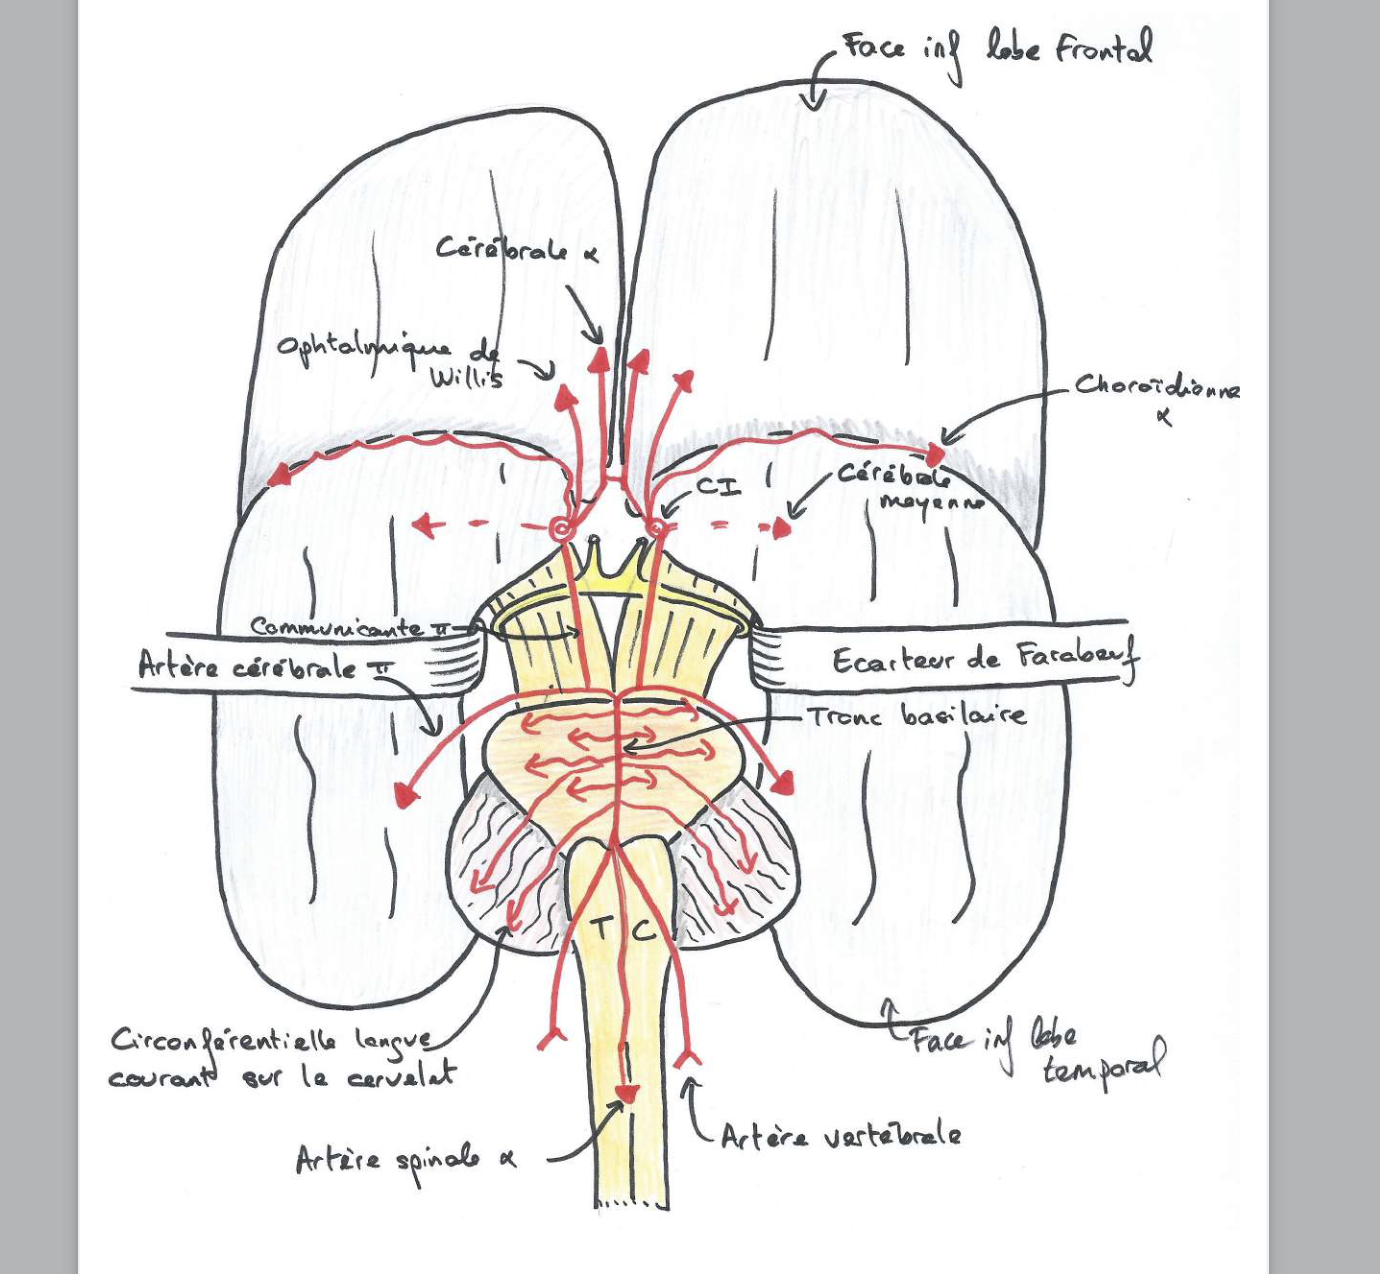 Face inf lobe Frontal
Cérébrale α
Ophtalmique de
Willis
Choroïdienne
α
CI
Cérébrale
moyenne
Communicante π
Artère cérébrale π
Ecarteur de Farabeuf
Tronc basilaire
T C
Circonférentielle longue
courant sur le cervelet
Face inf lobe
temporal
Artère vertébrale
Artère spinale α